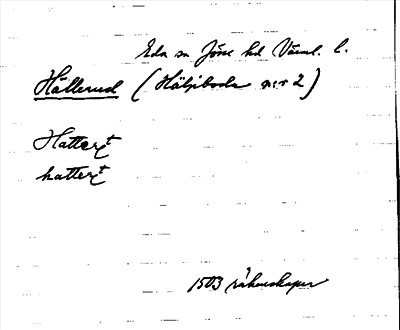 Eda sn Jösse hd Värml. l.
Hållerud (Häljeboda nr 2)
Hatter
hatter
1503 räkenskaper